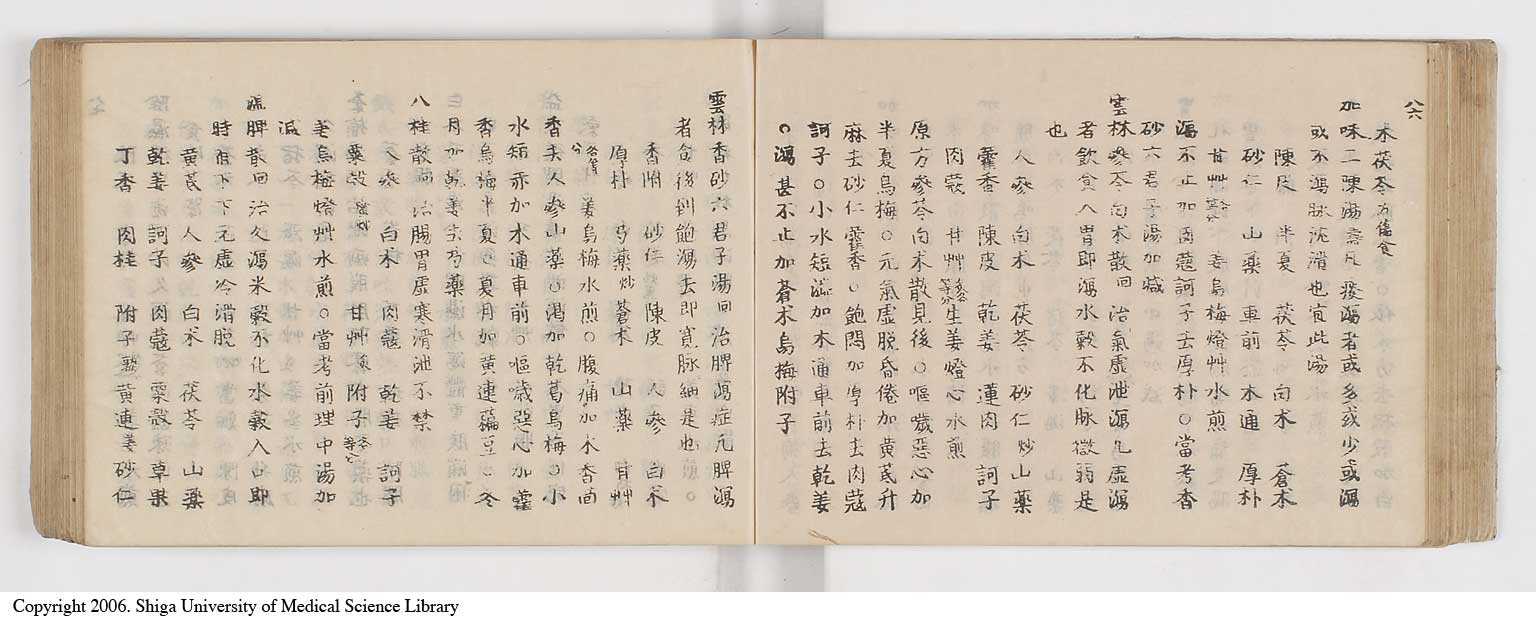 八六
朮茯苓方倍食
加味二陳湯壽凡痰瀉者或多或少或瀉
或不瀉脉沈滑也宜此湯
陳皮 半夏 茯苓 白朮 蒼朮
砂仁 山藥 車前 木通 厚朴
甘艸 姜烏梅燈艸水煎
瀉不止加肉蔻訶子去厚朴○當考香
砂六君子湯加減
雲林參苓白朮散回 治氣虛泄瀉凡虛瀉
者飲食入胃即瀉水穀不化脉微弱是
也
人參 白朮 茯苓 砂仁炒山藥
藿香 陳皮 乾姜 蓮肉 訶子
肉蔻 甘艸 生姜燈心水煎
原方參苓白朮散見後○嘔噦惡心加
半夏烏梅○元氣虛脫昏倦加黄芪升
麻去砂仁藿香○飽悶加厚朴去肉蔻
訶子○小水短澁加木通車前去乾姜
○瀉甚不止加蒼朮烏梅附子
雲林香砂六君子湯回治脾瀉症凡脾瀉
者食後到飽瀉去即寛脉細是也
香附 砂仁 陳皮 人參 白朮
厚朴 芍藥炒 蒼朮 山藥 甘艸
姜烏梅水煎○腹痛加木香茴
香去人參山藥○渇加乾葛烏梅○小
水短赤加木通車前○嘔噦惡心加藿
香烏梅半夏○夏月加黄連藊豆○冬
月加乾姜去芍藥
八桂散回治腸胃虛寒滑泄不禁
人參 白朮 肉蔻 乾姜 訶子
粟殻 甘艸 附子
姜烏梅燈艸水煎○當考前理中湯加
減
疏脾散回治久瀉米穀不化水穀入口即
時直下下元虛冷滑脫
黄芪 人參 白朮 茯苓 山藥
乾姜 訶子 肉蔻 粟殻 草果
丁香 肉桂 附子 黄連姜 砂仁
Copyright 2006. Shiga University of Medical Science Library